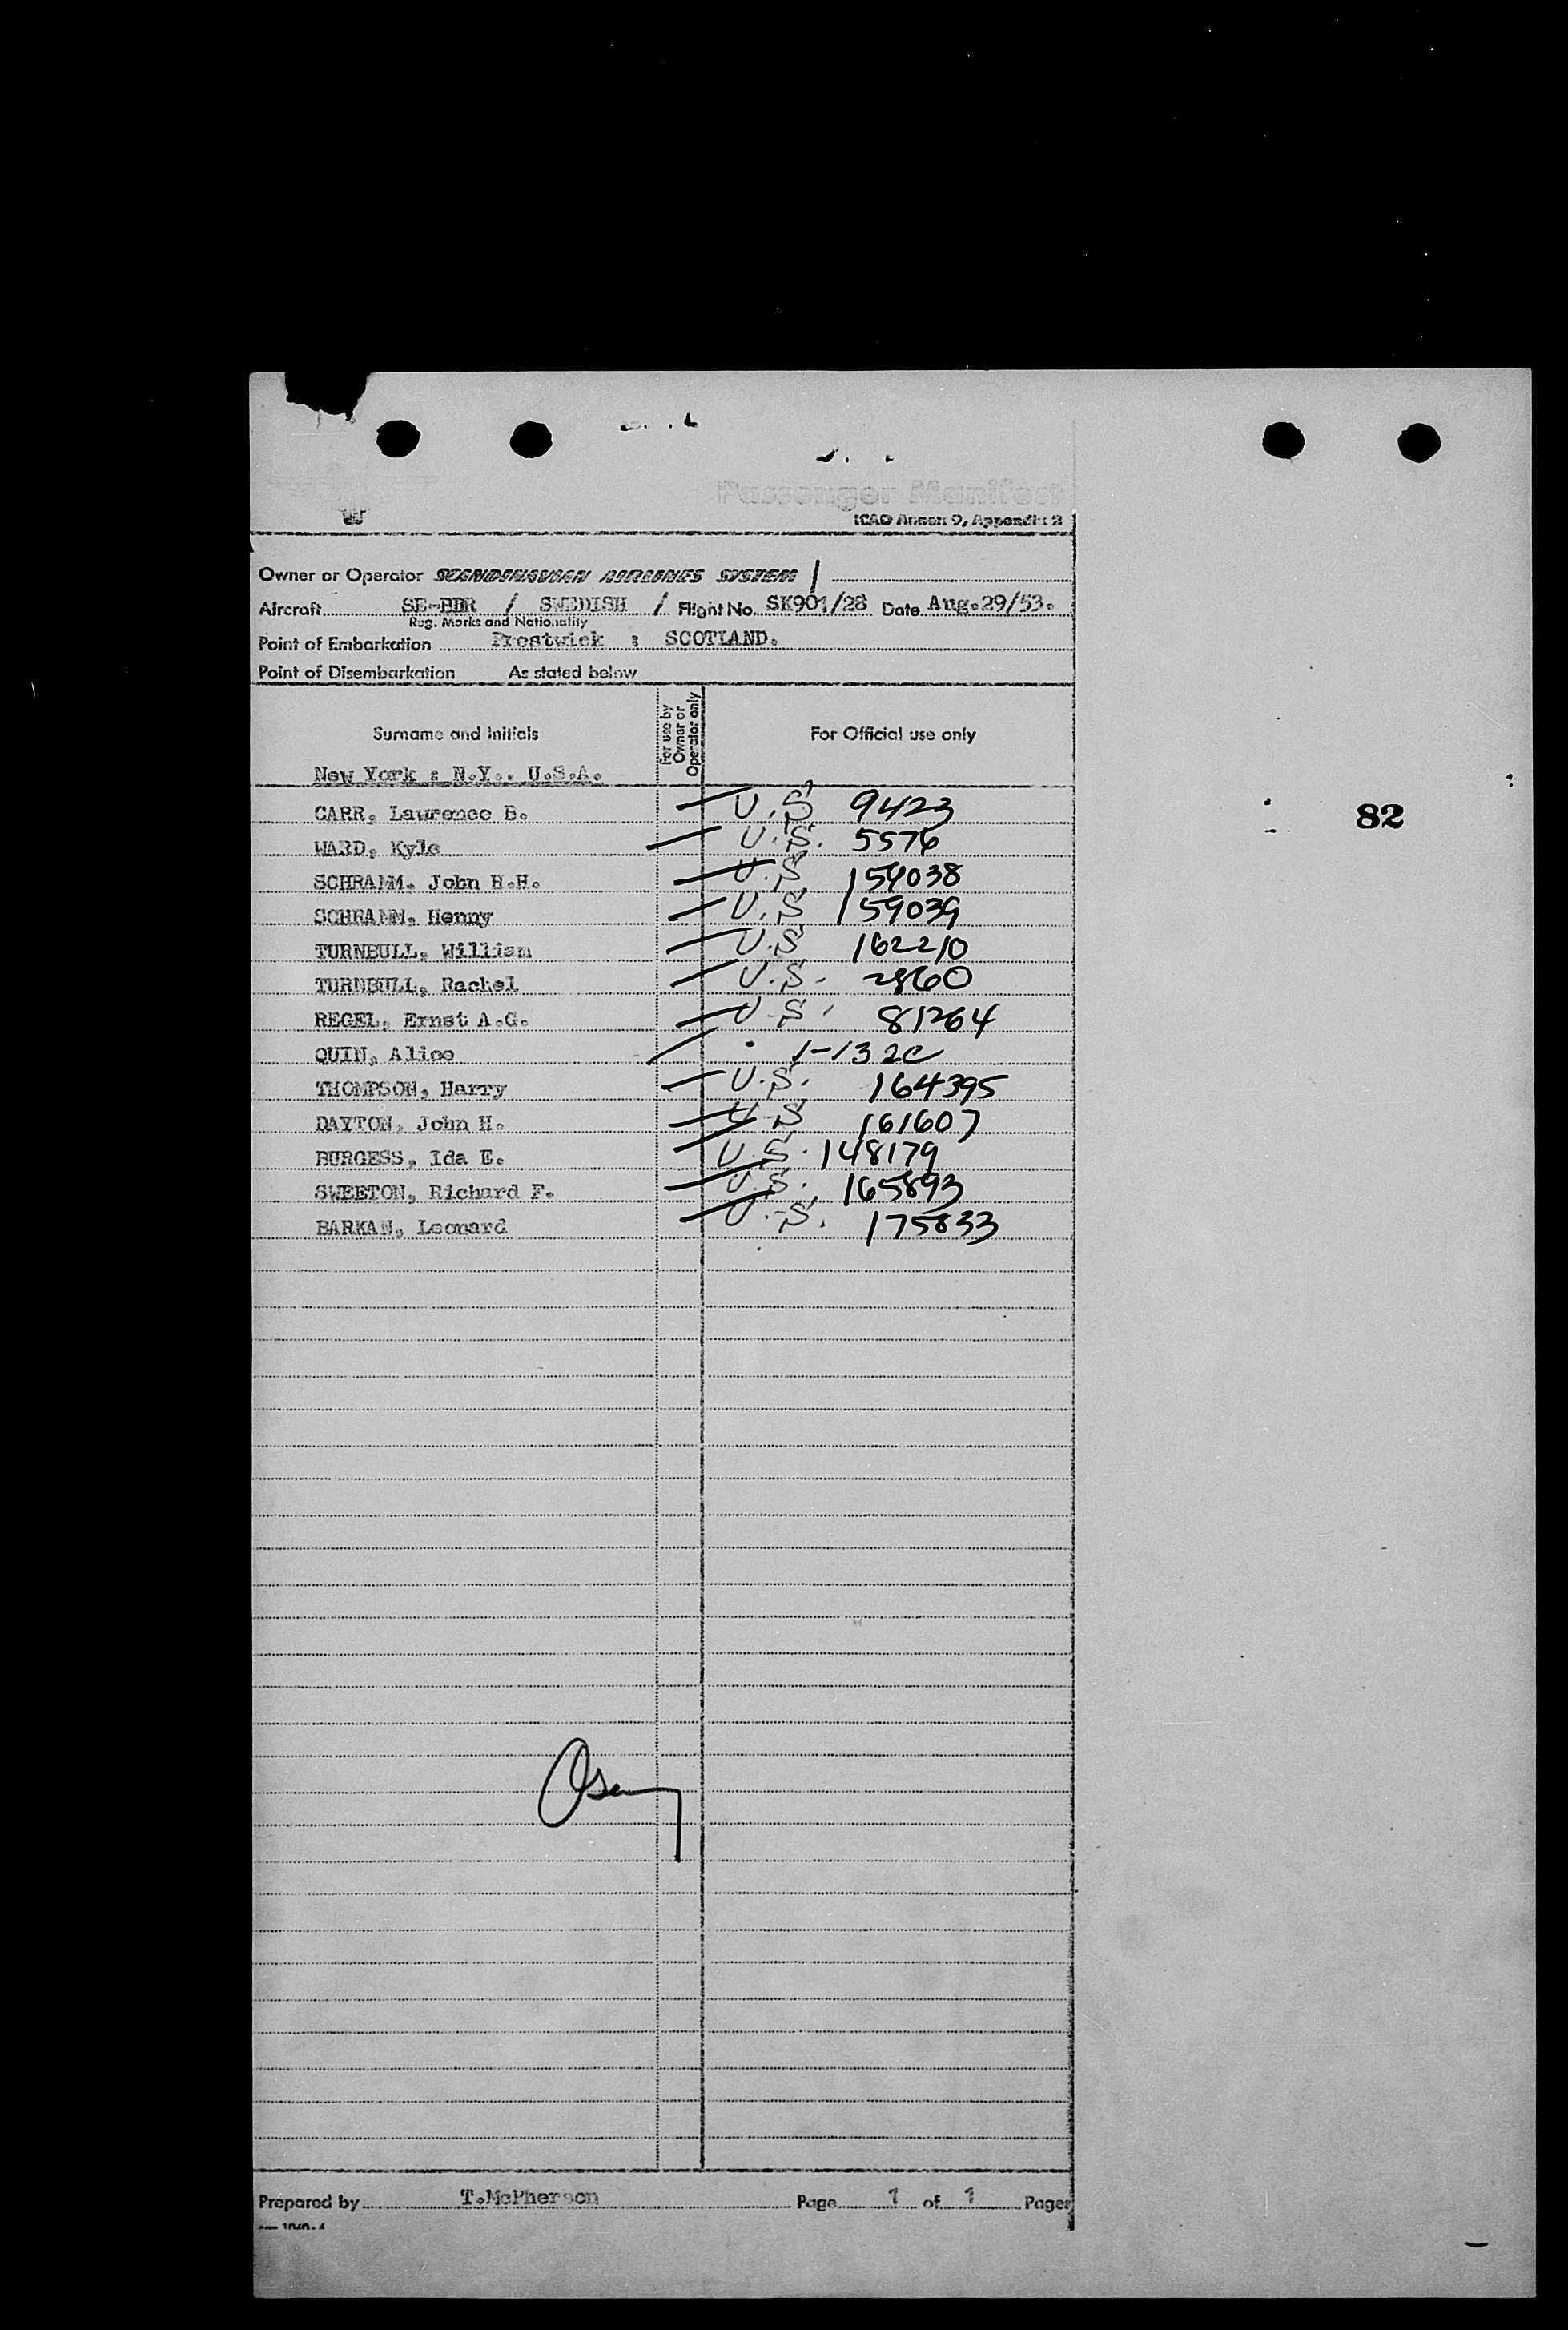 Passenger Manifest
ICAO Annex 9, Appendix 2
Owner or Operator SCANDINAVIAN AIRLINES SYSTEM
Aircraft SE-BDR / SWEDISH / Flight No. SK901/28 Date Aug.29/53.
Reg. Marks and Nationality
Point of Embarkation Prestwick : SCOTLAND.
Point of Disembarkation As stated below
Surname and Initials For use by Owner or Operator only For Official use only
New York : N.Y.. U.S.A.
CARR, Lawrence B. U.S 9423
82
WARD, Kyle U.S. 5576
SCHRAMM, John H.H. U.S 159038
SCHRAMM, Henny U.S 159039
TURNBULL, William U.S 162210
TURNBULL, Rachel U.S. 2860
REGEL, Ernst A.G. U.S. 81264
QUIN, Alice 1-132c
THOMPSON, Harry U.S. 164395
DAYTON, John H. U.S 161607
BURGESS, Ida E. U.S. 148179
SWEETON, Richard F. U.S. 165893
BARKAN, Leonard U.S. 175833
Prepared by T.McPherson Page 1 of 1 Pages